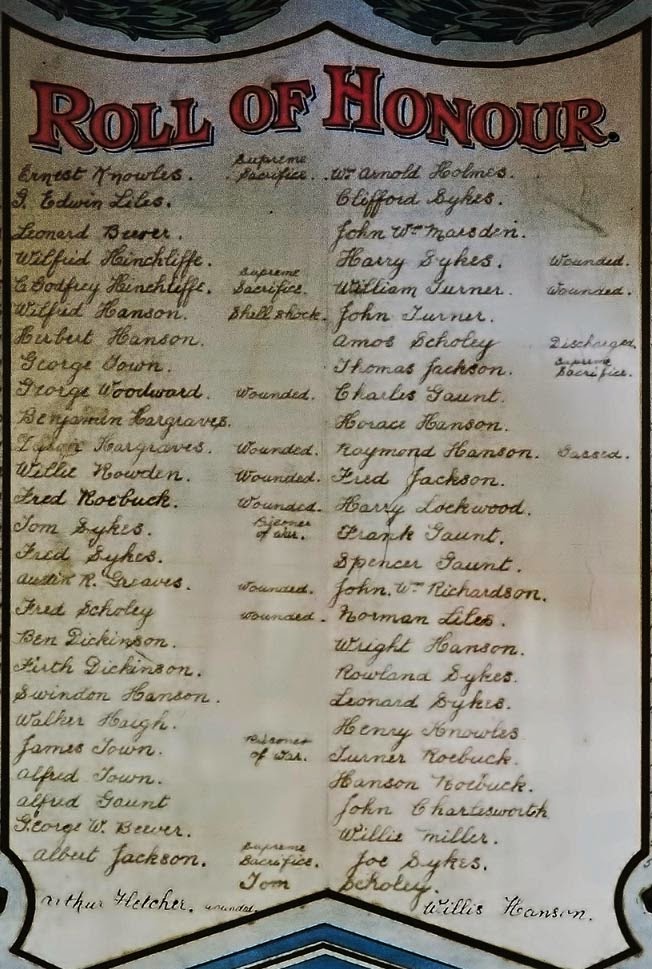 ROLL OF HONOUR.
Ernest Knowles. Supreme Sacrifice. Wm Arnold Holmes.
G. Edwin Liles. Clifford Sykes.
Leonard Beever. John Wm Marsden.
Wilfred Hinchliffe. Harry Sykes. Wounded.
C Godfrey Hinchliffe. Supreme Sacrifice. William Turner. Wounded.
Wilfred Hanson. Shell shock. John Turner.
Herbert Hanson. Amos Scholey Discharged.
George Town. Thomas Jackson. Supreme Sacrifice.
George Woodward. Wounded. Charles Gaunt.
Benjamin Hargraves. Horace Hanson.
Hargraves. Wounded. Raymond Hanson. Gassed.
Willie Rowden. Wounded. Fred Jackson.
Fred Roebuck. Wounded. Harry Lockwood.
Tom Sykes. Prisoner of War. Frank Gaunt.
Fred Sykes. Spencer Gaunt.
Austin R. Greaves. Wounded. John. Wm Richardson.
Fred Scholey Wounded. Norman Liles.
Ben Dickinson. Wright Hanson.
Firth Dickinson. Rowland Sykes.
Swindon Hanson. Leonard Sykes.
Walker Haigh. Henry Knowles
James Town. Prisoner of War. Turner Roebuck.
Alfred Town. Hanson Roebuck.
Alfred Gaunt John Charlesworth
George W. Beever. Willie Miller.
Albert Jackson. Supreme Sacrifice. Joe Sykes.
Tom Scholey.
Arthur Fletcher. wounded. Willis Hanson.